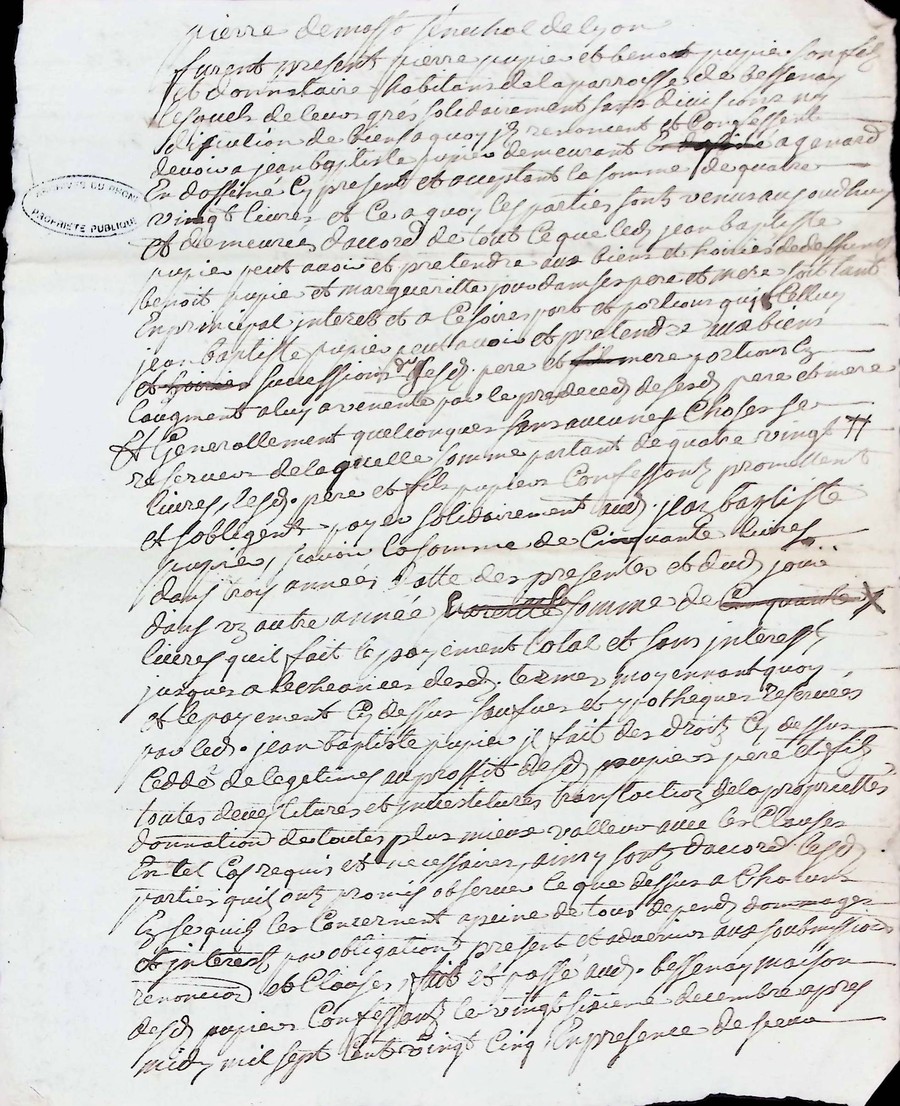 pierre de masso senechal de lyon
furent present pierre pupier et benoit pupier son filz
et donnataire habitans de la parroisse de bessenay
lesquels de leurs grés solidairement sans division ny
de biens a quoy ilz renoncent et Confessent
devoir a jean baptiste pupier demeurant a
cy present et acceptant la somme de quatre
vingt livres et ce a quoy les parties sont venus aujourdhuy
et demeurés d'accord de tout ce que led. jean baptiste
pupier peut avoir et pretendre aux biens et hoiries de deffunts
benoit pupier et margueritte ses pere et mere soit tant
En principal interest et accesoires part et portions quicelluy
jean baptiste pupier peut avoir et pretendre aux biens
et hoiries successions desd. pere et mere portions
Laugment a luy avenente par le predeced desesd. pere et mere
Et Generallement quelconques sans aucunes Choses se
reserver de laquelle somme partant de quatre vingt
livres, lesd. pere et fils pupiers Confessants promettent
et soblegent payer solidairement aud. jean baptiste
pupier, scavoir la somme de Cinquante livres
dans trois années datte des presentes et dud. jour
dans une autre année somme de Cinquante X
livres quil fait le payement total et sans interest
jusques a lecheances desd. termes moyennant quoy
et le payement Cy dessus saufues et ypotheques reservées
par led. jean baptiste pupier il fait des droitz Cy dessus
Ceddés de legetimes au proffit desd. pupiers pere et filz
toutes devestitures et investitures translaction de la proprietté
donnation de toutes plus mieux valleur avec les Clauses
En tel Cas requis et necessaires, ainsy sont d'accord lesd.
parties quil ont promis observer ce que dessus a Chacun
En se quil les Concernent a peine de tous depend dommages
et interest, par obligation present et advenir aux soubmissions
renoncion et Clauses, fait et passé aud. bessenay maison
desd. pupiers Confessantz le vingt sixieme decembre apres
midy mil sept Cent Vingt Cinq En presence de sieur
ARCHIVES DU RHONE
PROPRIÉTÉ PUBLIQUE